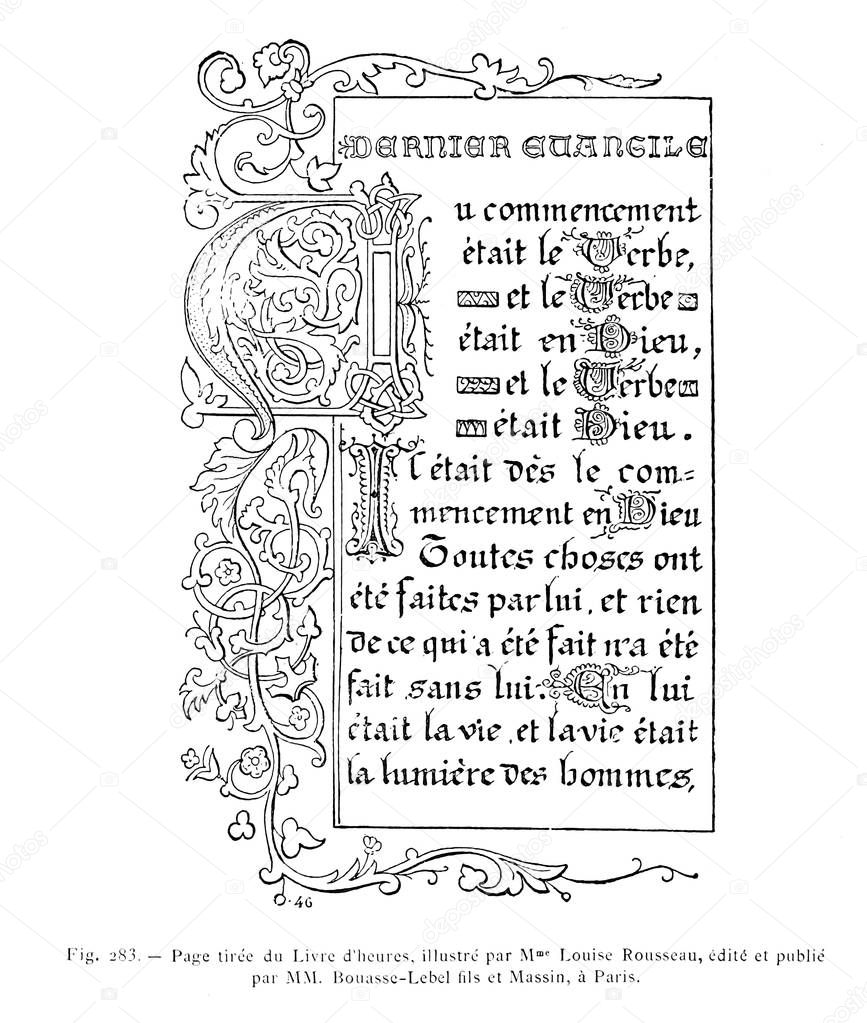 DERNIER EVANGILE
Au commencement
était le Verbe,
et le Verbe
était en Dieu,
et le Verbe
était Dieu.
Il était dès le com=
mencement en Dieu
Toutes choses ont
été faites par lui, et rien
de ce qui a été fait n'a été
fait sans lui. En lui
était la vie, et la vie était
la lumière des hommes,
46
Fig. 283. — Page tirée du Livre d'heures, illustré par Mme Louise Rousseau, édité et publié
par MM. Bouasse-Lebel fils et Massin, à Paris.